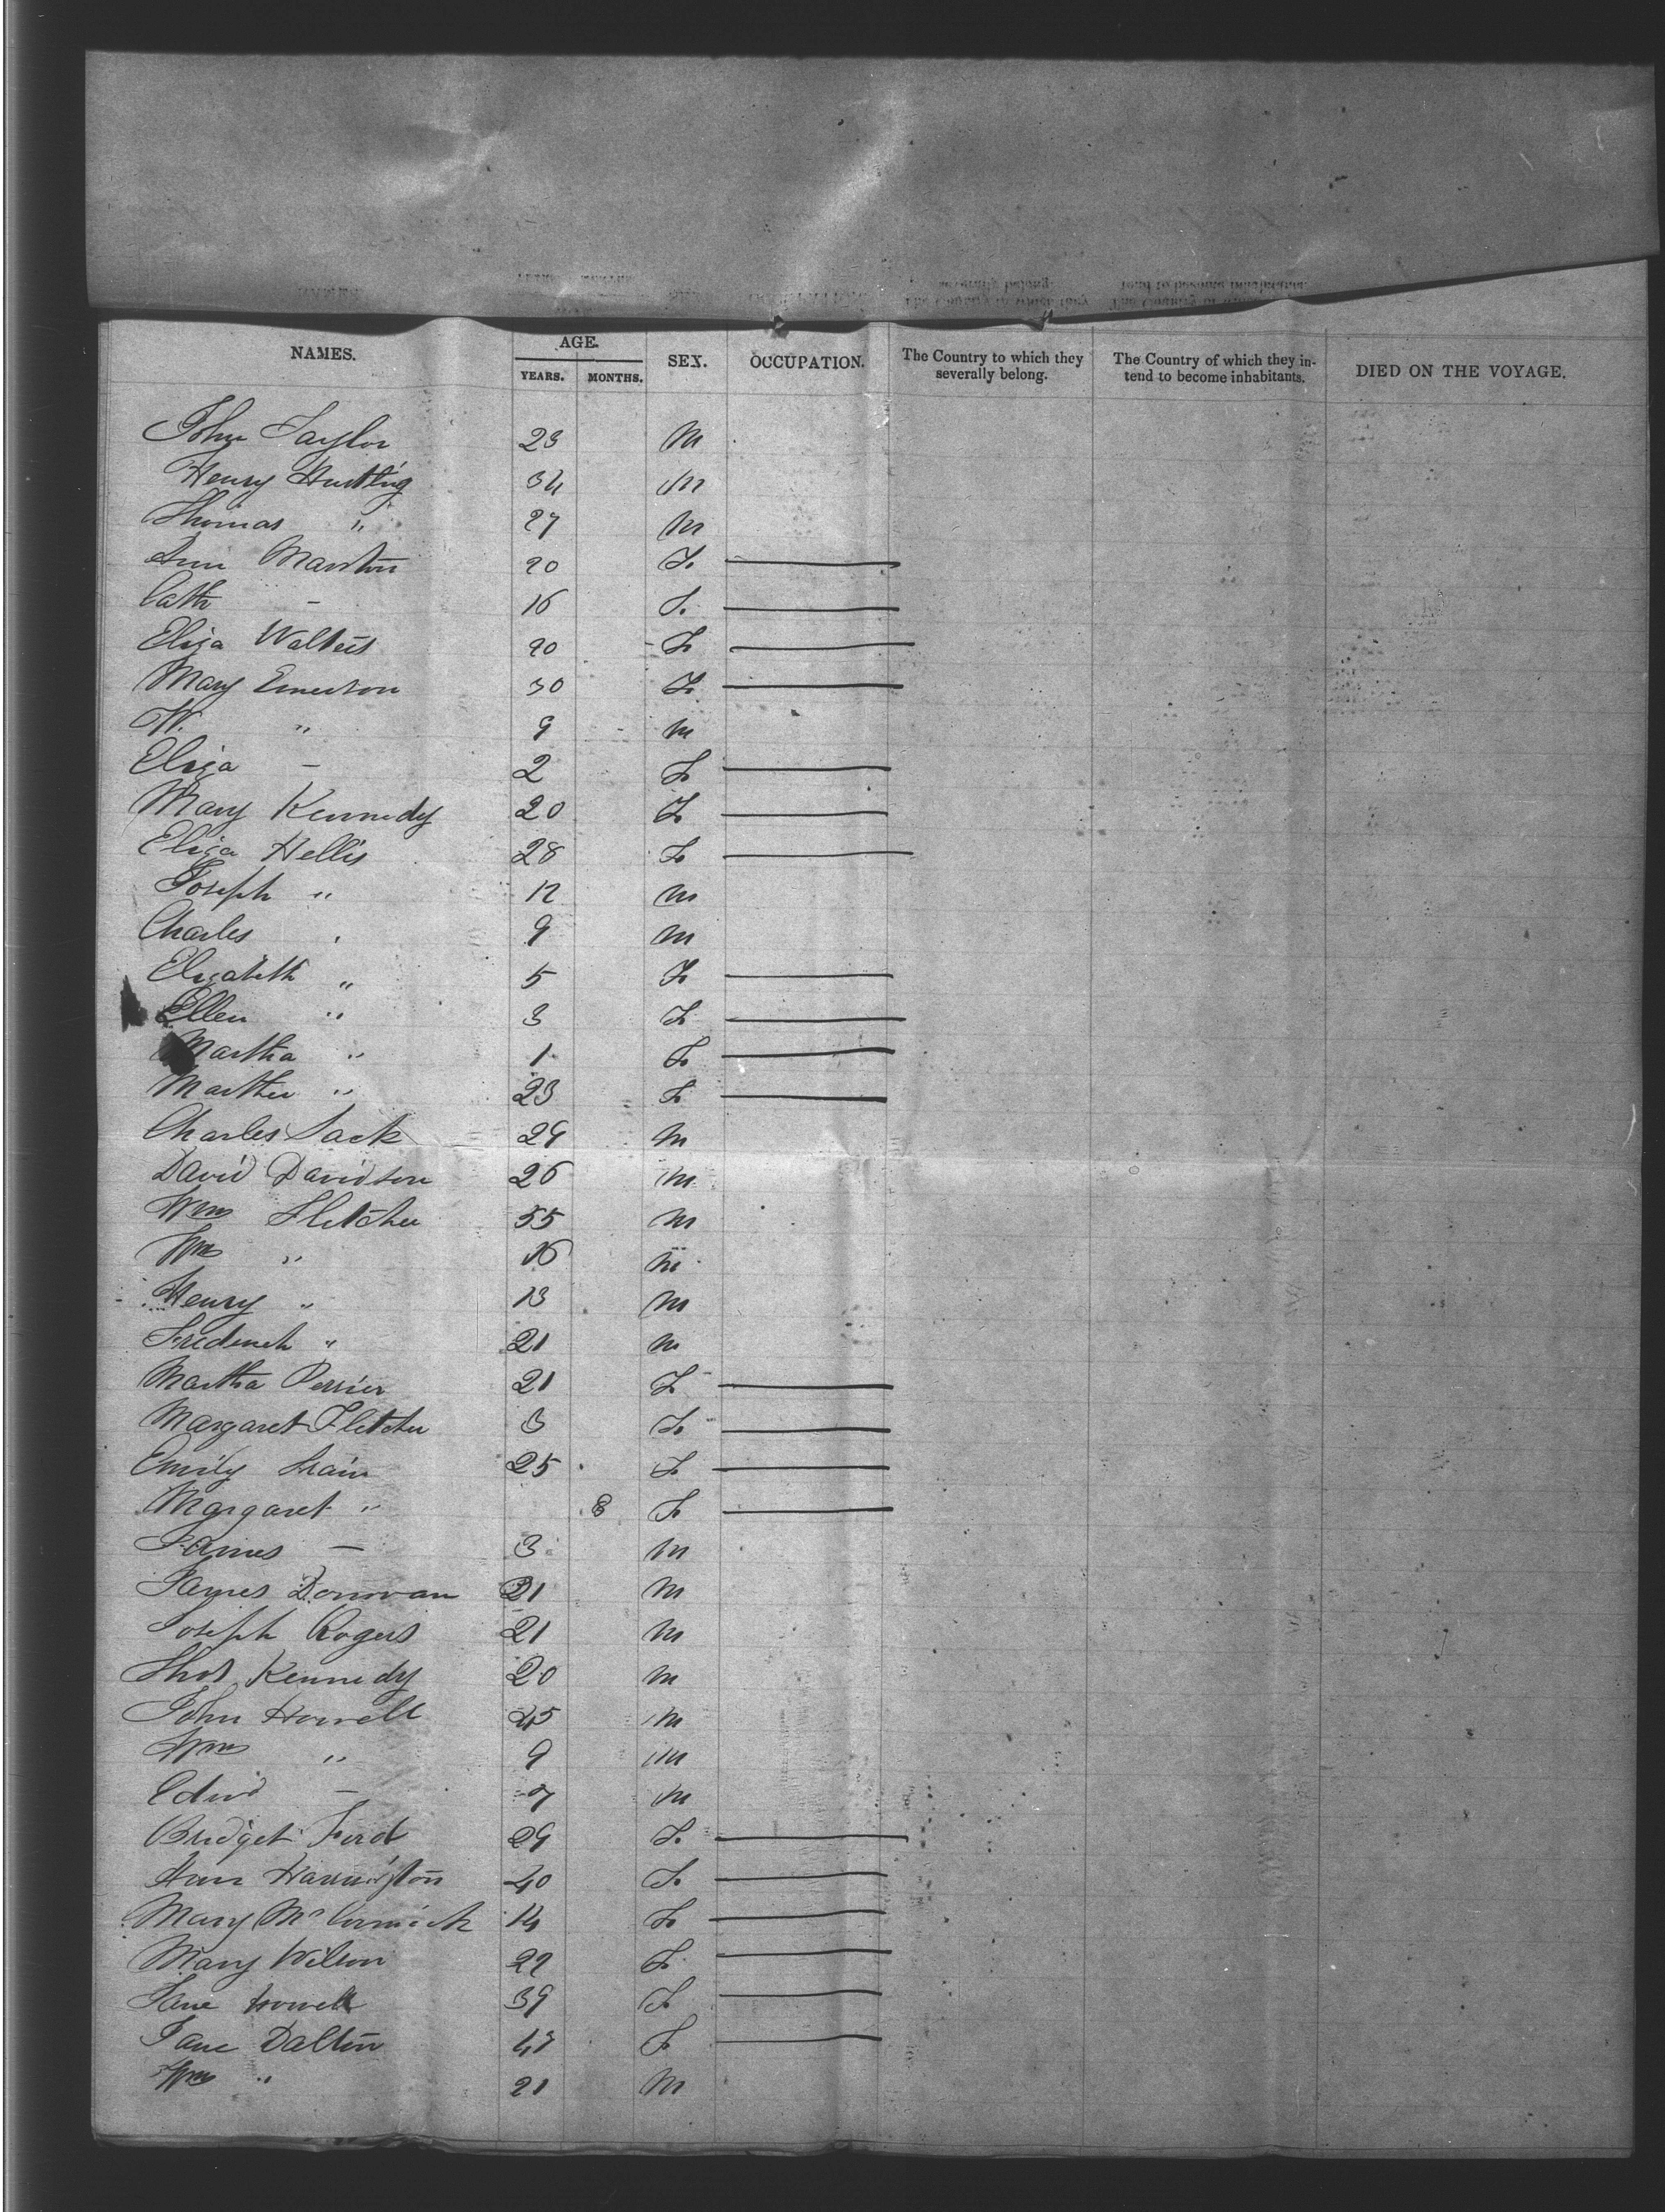 NAMES. AGE. YEARS. MONTHS. SEX. OCCUPATION. The Country to which they severally belong. The Country of which they intend to become inhabitants. DIED ON THE VOYAGE.
John Taylor 23 M
Henry 34 M
Thomas " 27 M
Ann 20 F.
Cath - 16 F.
Eliza Walters 20 F
Mary Emerson 30 F
W. " 9 M
Eliza - 2 F
Mary Kennedy 20 F
Eliza Hellis 28 F
Joseph " 12 M
Charles " 9 M
Elizabeth " 5 F
Ellen " 3 F
Martha " 1 F
" 23 F
Charles Jack 29 M
David Davidson 26 M
Wm Fletcher 55 M
Wm " 16 M
Henry " 13 M
Frederick " 21 M
Martha Perrier 21 F
Margaret Fletcher 3 F
Emily 25 F
Margaret " 8 F
James - 3 M
James Donovan 21 M
Joseph Rogers 21 M
Thos Kennedy 20 M
John Howell 45 M
Wm " 9 M
Edwd - 7 M
Bridget Ford 29 F.
Ann Harrington 40 F.
Mary McCormick 14 F
Mary Wilson 22 F.
Jane Howell 39 F
Jane Dalton 47 F.
Wm " 21 M